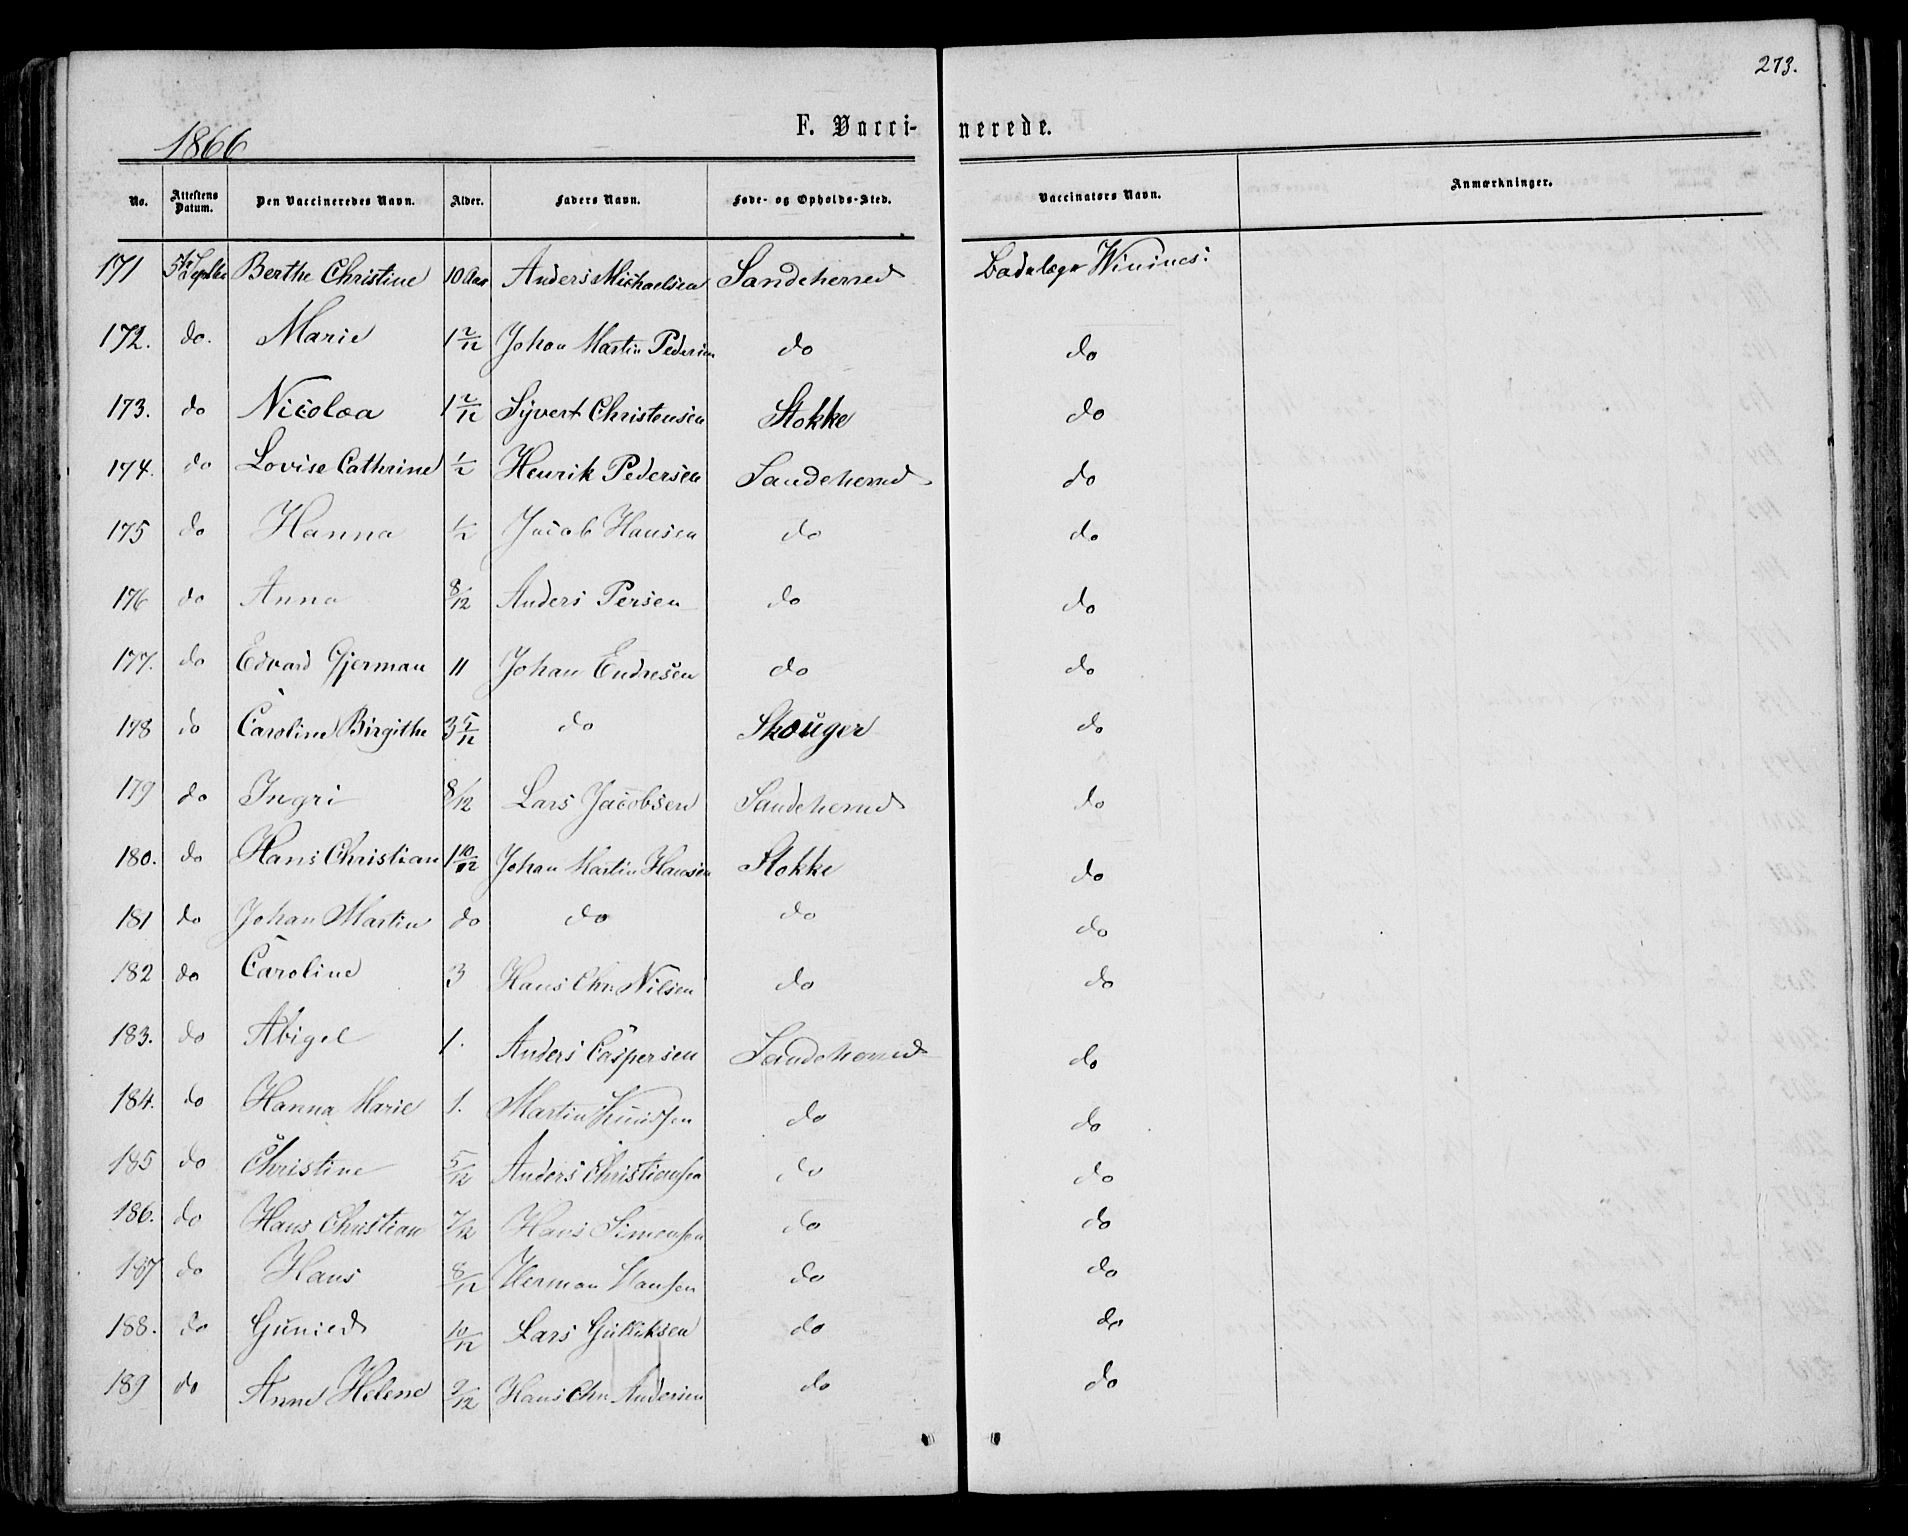 273.
1866
F. Vacci- nerede.
No. Attestens Datum. Den Vaccineredes Navn. Alder. Faders Navn. Føde- og Opholds-Sted. Vaccinators Navn. Anmærkninger.
171 5te Septbr Berthe Christine 10 Aar Anders Michaelsen Sandeherred Badelæge
172. do. Marie 1 2/12 Johan Martin Pedersen do do
173. do Nicolea 1 2/12 Syvert Christensen Stokke do
174. do Lovise Cathrine 1/2 Henrik Pedersen Sandeherred do
175 do Hanna 1/2 Jacob Hansen do do
176 do Anna 8/12 Anders Persen do do
177. do Edvard Gjerman 11 Johan Endresen do do
178 do Caroline Birgithe 3 5/12 do Skouger do
179 do Ingri 8/12 Lars Jacobsen Sandeherred do
180. do Hans Christian 1 10/12 Johan Martin Hansen Stokke do
181 do Johan Martin do do do do
182 do Caroline 3 Hans Chr. Nilsen do do
183. do Abigel 1. Anders Caspersen Sandeherred do
184. do Hanna Marie 1. Martin Knudsen do do
185 do Christine 5/12 Anders Christiansen do do
186. do Hans Christian 7/12 Hans Simonsen do do
187 do Hans 8/12 Herman Hansen do do
188. do Guned 10/12 Lars Gulliksen do do
189 do Anne Helene 9/12 Hans Chr. Andersen do do